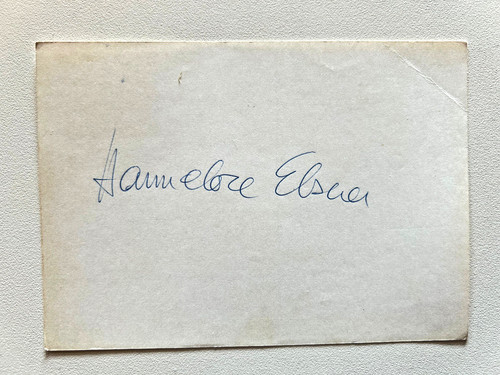 Hannelore Elsner